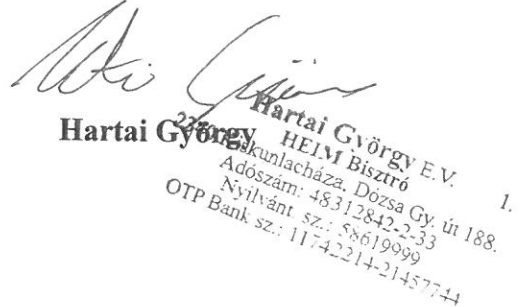 Hartai György
Hartai György E.V.
HEIM Bisztró
Kiskunlacháza, Dózsa Gy. út 188.
Adószám: 48312842-2-33
Nyilvánt. sz.: 58619999
OTP Bank sz.: 11742214-21457744
1.